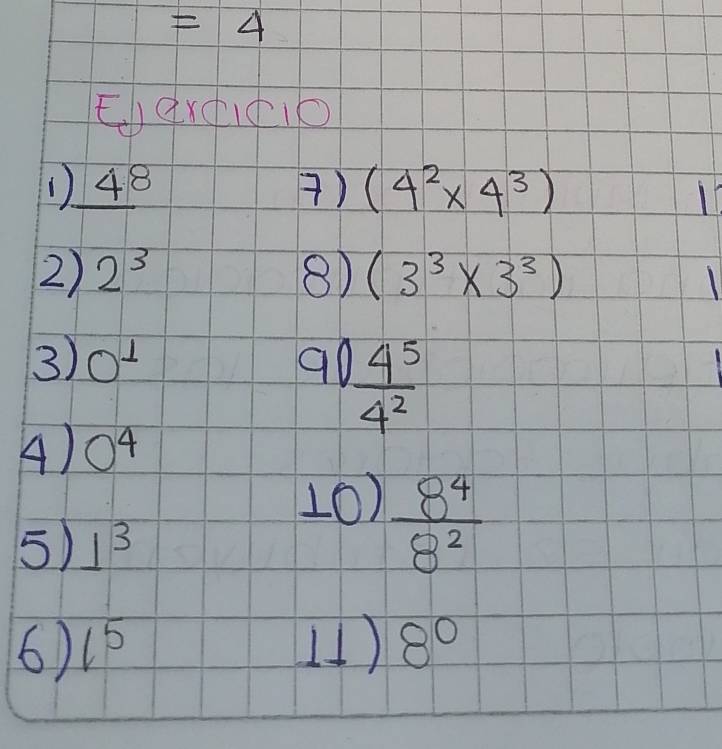 = 4
Ejercicio
1) 4⁸
2) 2³
3) 0¹
4) 0⁴
5) 1³
6) 1⁵
7) (4² x 4³)
8) (3³ x 3³)
9) 4⁵
4²
10) 8⁴
8²
11) 8⁰